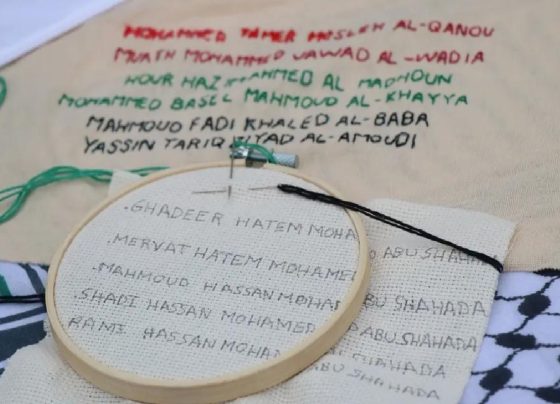 MOHAMMED TAMER MOSLEH AL-QANOU
MUATH MOHAMMED JAWAD AL-WADIA
HOUR AL MADHOUN
MOHAMMED BASEL MAHMOUD AL-KHAYYA
MAHMOUD FADI KHALED AL-BABA
YASSIN TARIQ ZIYAD AL-AMOUDI
.GHADEER HATEM MOHA ABU SHAHADA
.MERVAT HATEM MOHAMED ABU SHAHADA
.MAHMOUD HASSAN MOHAM ABU SHAHADA
.SHADI HASSAN MOHAMED ABU SHAHADA
RAMI HASSAN MOHAM ABU SHAHADA